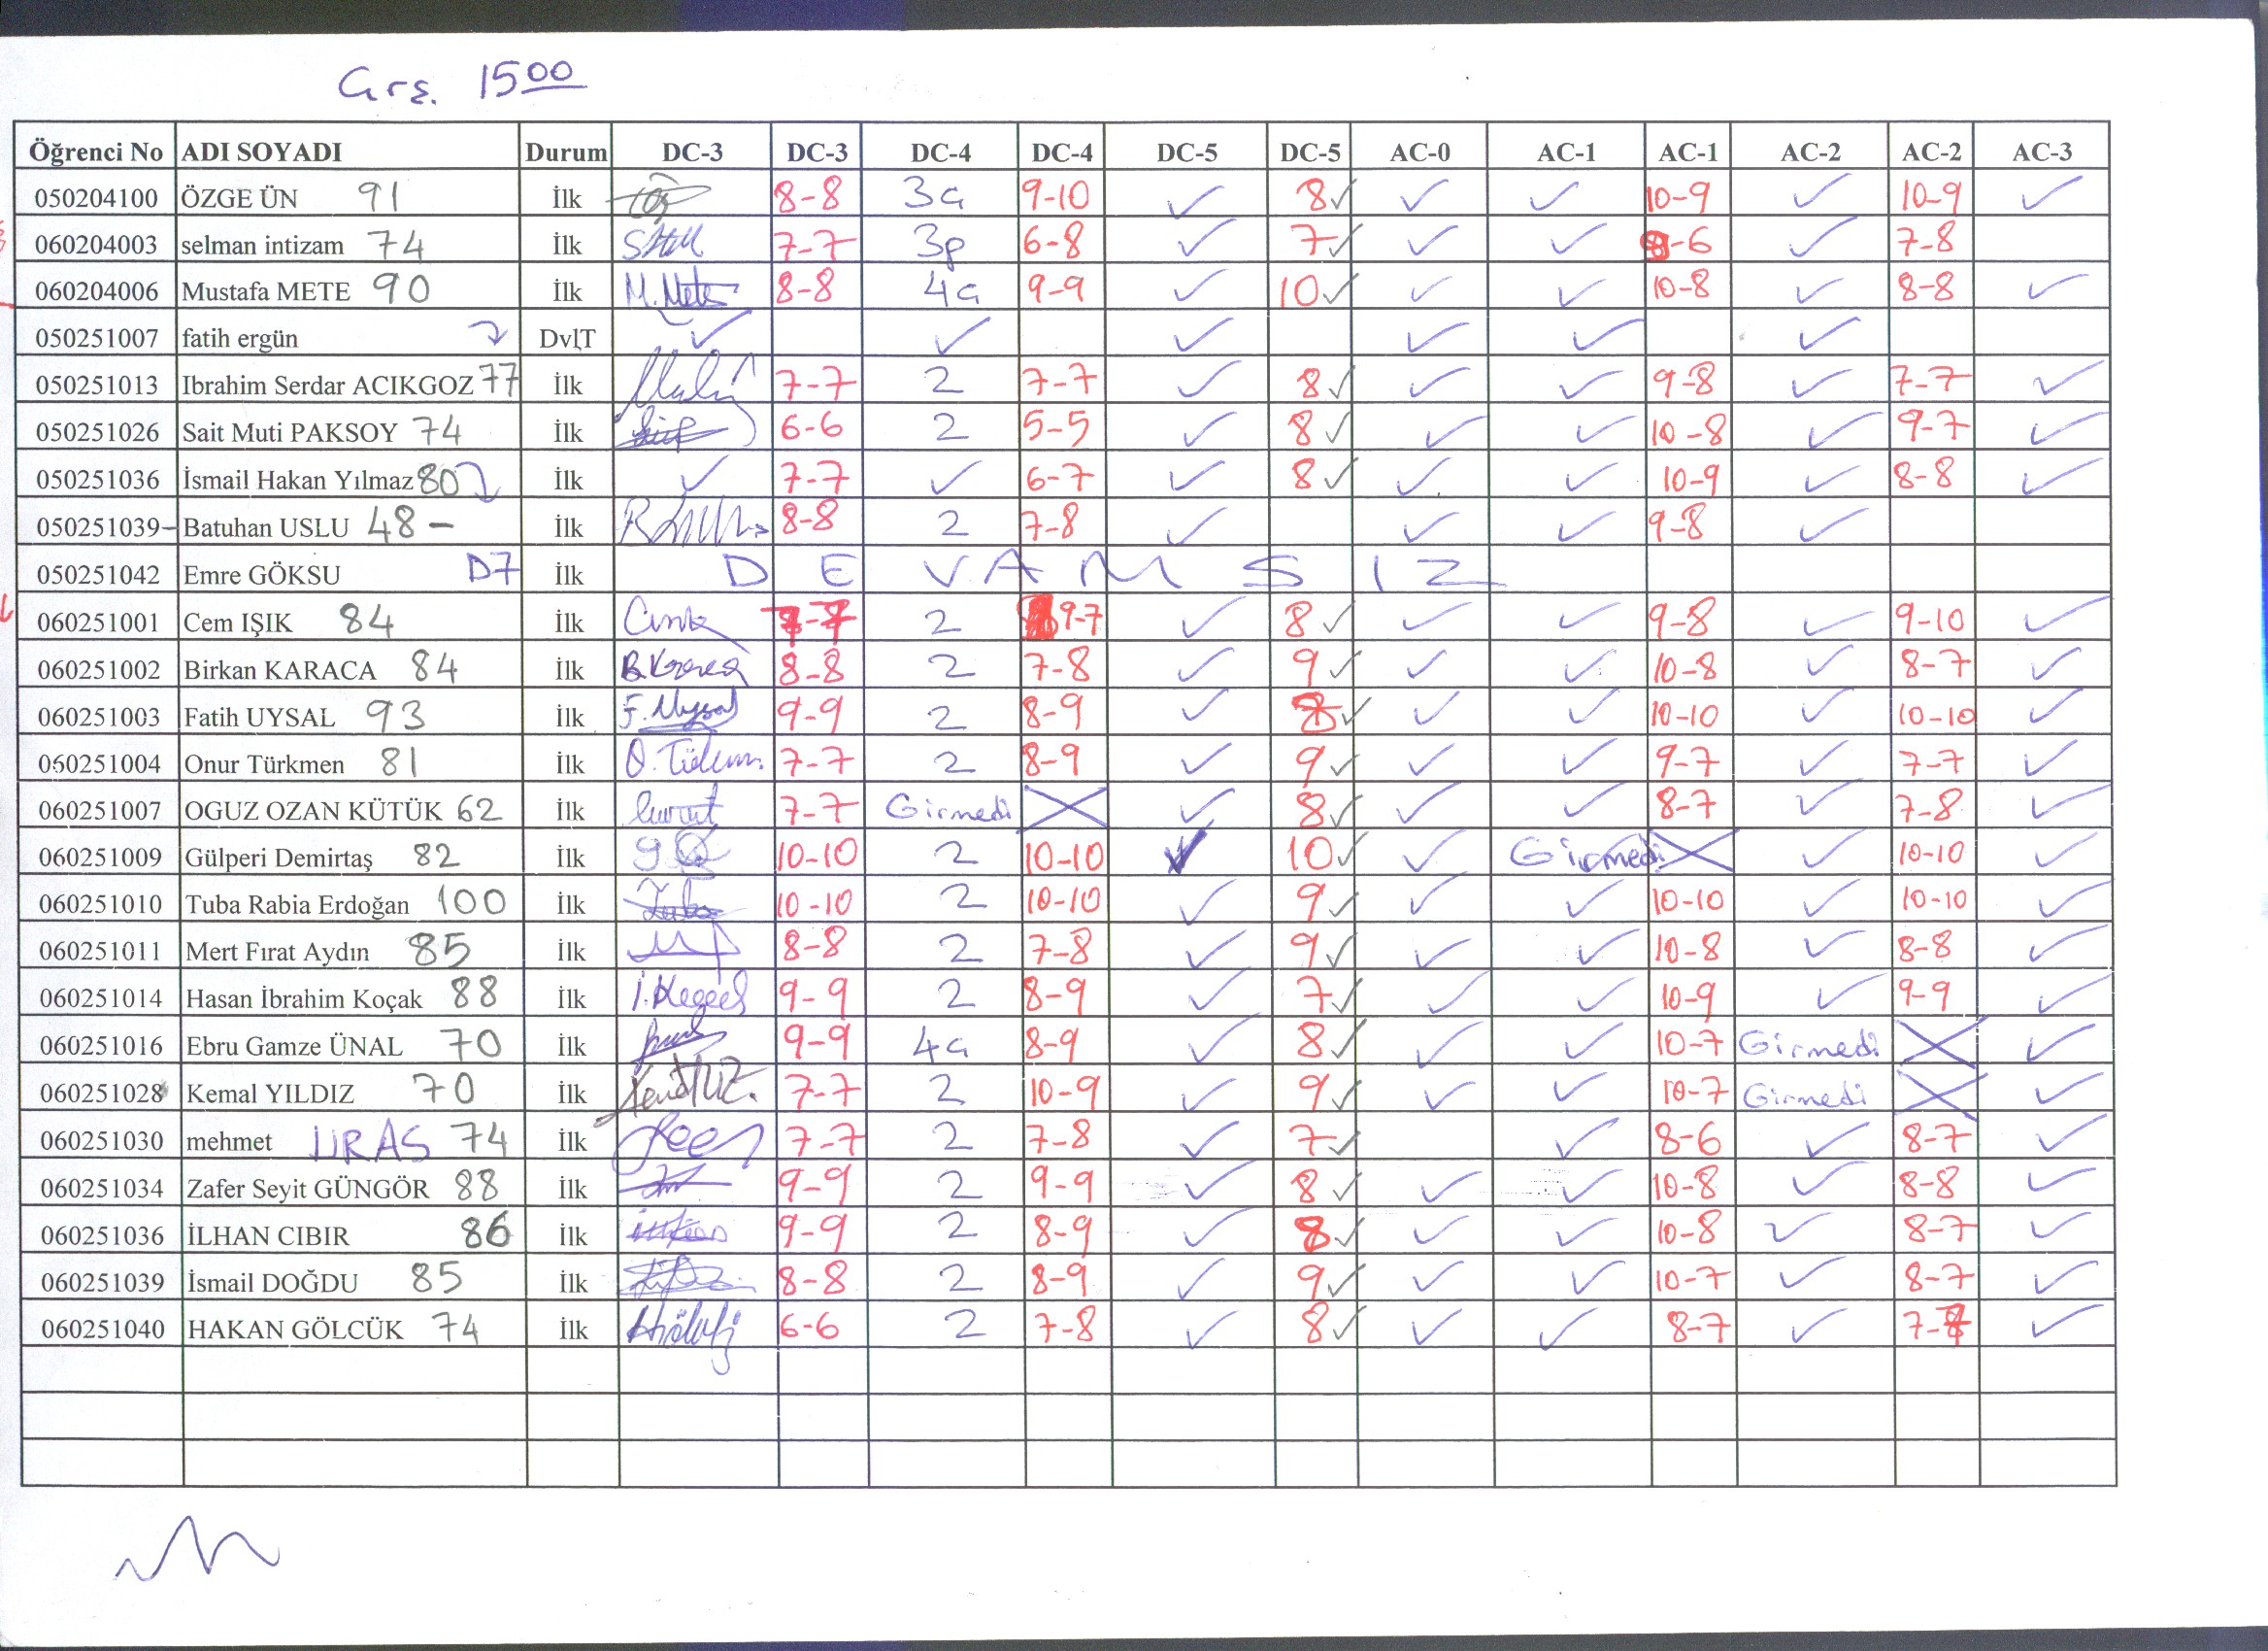 Çrş. 15 00
Öğrenci No ADI SOYADI Durum DC-3 DC-3 DC-4 DC-4 DC-5 DC-5 AC-0 AC-1 AC-1 AC-2 AC-2 AC-3
050204100 ÖZGE ÜN 91 İlk 8-8 3a 9-10 ✓ 8✓ ✓ ✓ 10-9 ✓ 10-9 ✓
060204003 selman intizam 74 İlk 7-7 3p 6-8 ✓ 7✓ ✓ ✓ 8-6 ✓ 7-8
060204006 Mustafa METE 90 İlk M.Mete 8-8 4a 9-9 ✓ 10✓ ✓ ✓ 10-8 ✓ 8-8 ✓
050251007 fatih ergün DvlT ✓ ✓ ✓ ✓ ✓ ✓
050251013 Ibrahim Serdar ACIKGOZ 77 İlk 7-7 2 7-7 ✓ 8✓ ✓ ✓ 9-8 ✓ 7-7 ✓
050251026 Sait Muti PAKSOY 74 İlk 6-6 2 5-5 ✓ 8✓ ✓ ✓ 10-8 ✓ 9-7 ✓
050251036 İsmail Hakan Yılmaz 80 İlk ✓ 7-7 ✓ 6-7 ✓ 8✓ ✓ ✓ 10-9 ✓ 8-8 ✓
050251039- Batuhan USLU 48 - İlk 8-8 2 7-8 ✓ ✓ ✓ 9-8 ✓
050251042 Emre GÖKSU DZ İlk DEVAMSIZ
060251001 Cem IŞIK 84 İlk 7-7 2 9-7 ✓ 8✓ ✓ ✓ 9-8 ✓ 9-10 ✓
060251002 Birkan KARACA 84 İlk B.Karaca 8-8 2 7-8 ✓ 9✓ ✓ ✓ 10-8 ✓ 8-7 ✓
060251003 Fatih UYSAL 93 İlk F.Uysal 9-9 2 8-9 ✓ 8✓ ✓ ✓ 10-10 ✓ 10-10 ✓
060251004 Onur Türkmen 81 İlk 7-7 2 8-9 ✓ 9✓ ✓ ✓ 9-7 ✓ 7-7 ✓
060251007 OGUZ OZAN KÜTÜK 62 İlk 7-7 Girmedi ✓ 8✓ ✓ ✓ 8-7 ✓ 7-8 ✓
060251009 Gülperi Demirtaş 82 İlk 10-10 2 10-10 ✓ 10✓ ✓ Girmedi ✓ 10-10 ✓
060251010 Tuba Rabia Erdoğan 100 İlk 10-10 2 10-10 ✓ 9✓ ✓ ✓ 10-10 ✓ 10-10 ✓
060251011 Mert Fırat Aydın 85 İlk 8-8 2 7-8 ✓ 9✓ ✓ ✓ 10-8 ✓ 8-8 ✓
060251014 Hasan İbrahim Koçak 88 İlk 9-9 2 8-9 ✓ 7✓ ✓ ✓ 10-9 ✓ 9-9 ✓
060251016 Ebru Gamze ÜNAL 70 İlk 9-9 4a 8-9 ✓ 8✓ ✓ ✓ 10-7 Girmedi ✓
060251028 Kemal YILDIZ 70 İlk 7-7 2 10-9 ✓ 9✓ ✓ ✓ 10-7 Girmedi ✓
060251030 mehmet URAS 74 İlk 7-7 2 7-8 ✓ 7✓ ✓ 8-6 ✓ 8-7 ✓
060251034 Zafer Seyit GÜNGÖR 88 İlk 9-9 2 9-9 ✓ 8✓ ✓ ✓ 10-8 ✓ 8-8 ✓
060251036 İLHAN CIBIR 86 İlk 9-9 2 8-9 ✓ 8✓ ✓ ✓ 10-8 ✓ 8-7 ✓
060251039 İsmail DOĞDU 85 İlk 8-8 2 8-9 ✓ 9✓ ✓ ✓ 10-7 ✓ 8-7 ✓
060251040 HAKAN GÖLCÜK 74 İlk 6-6 2 7-8 ✓ 8✓ ✓ ✓ 8-7 ✓ 7-7 ✓